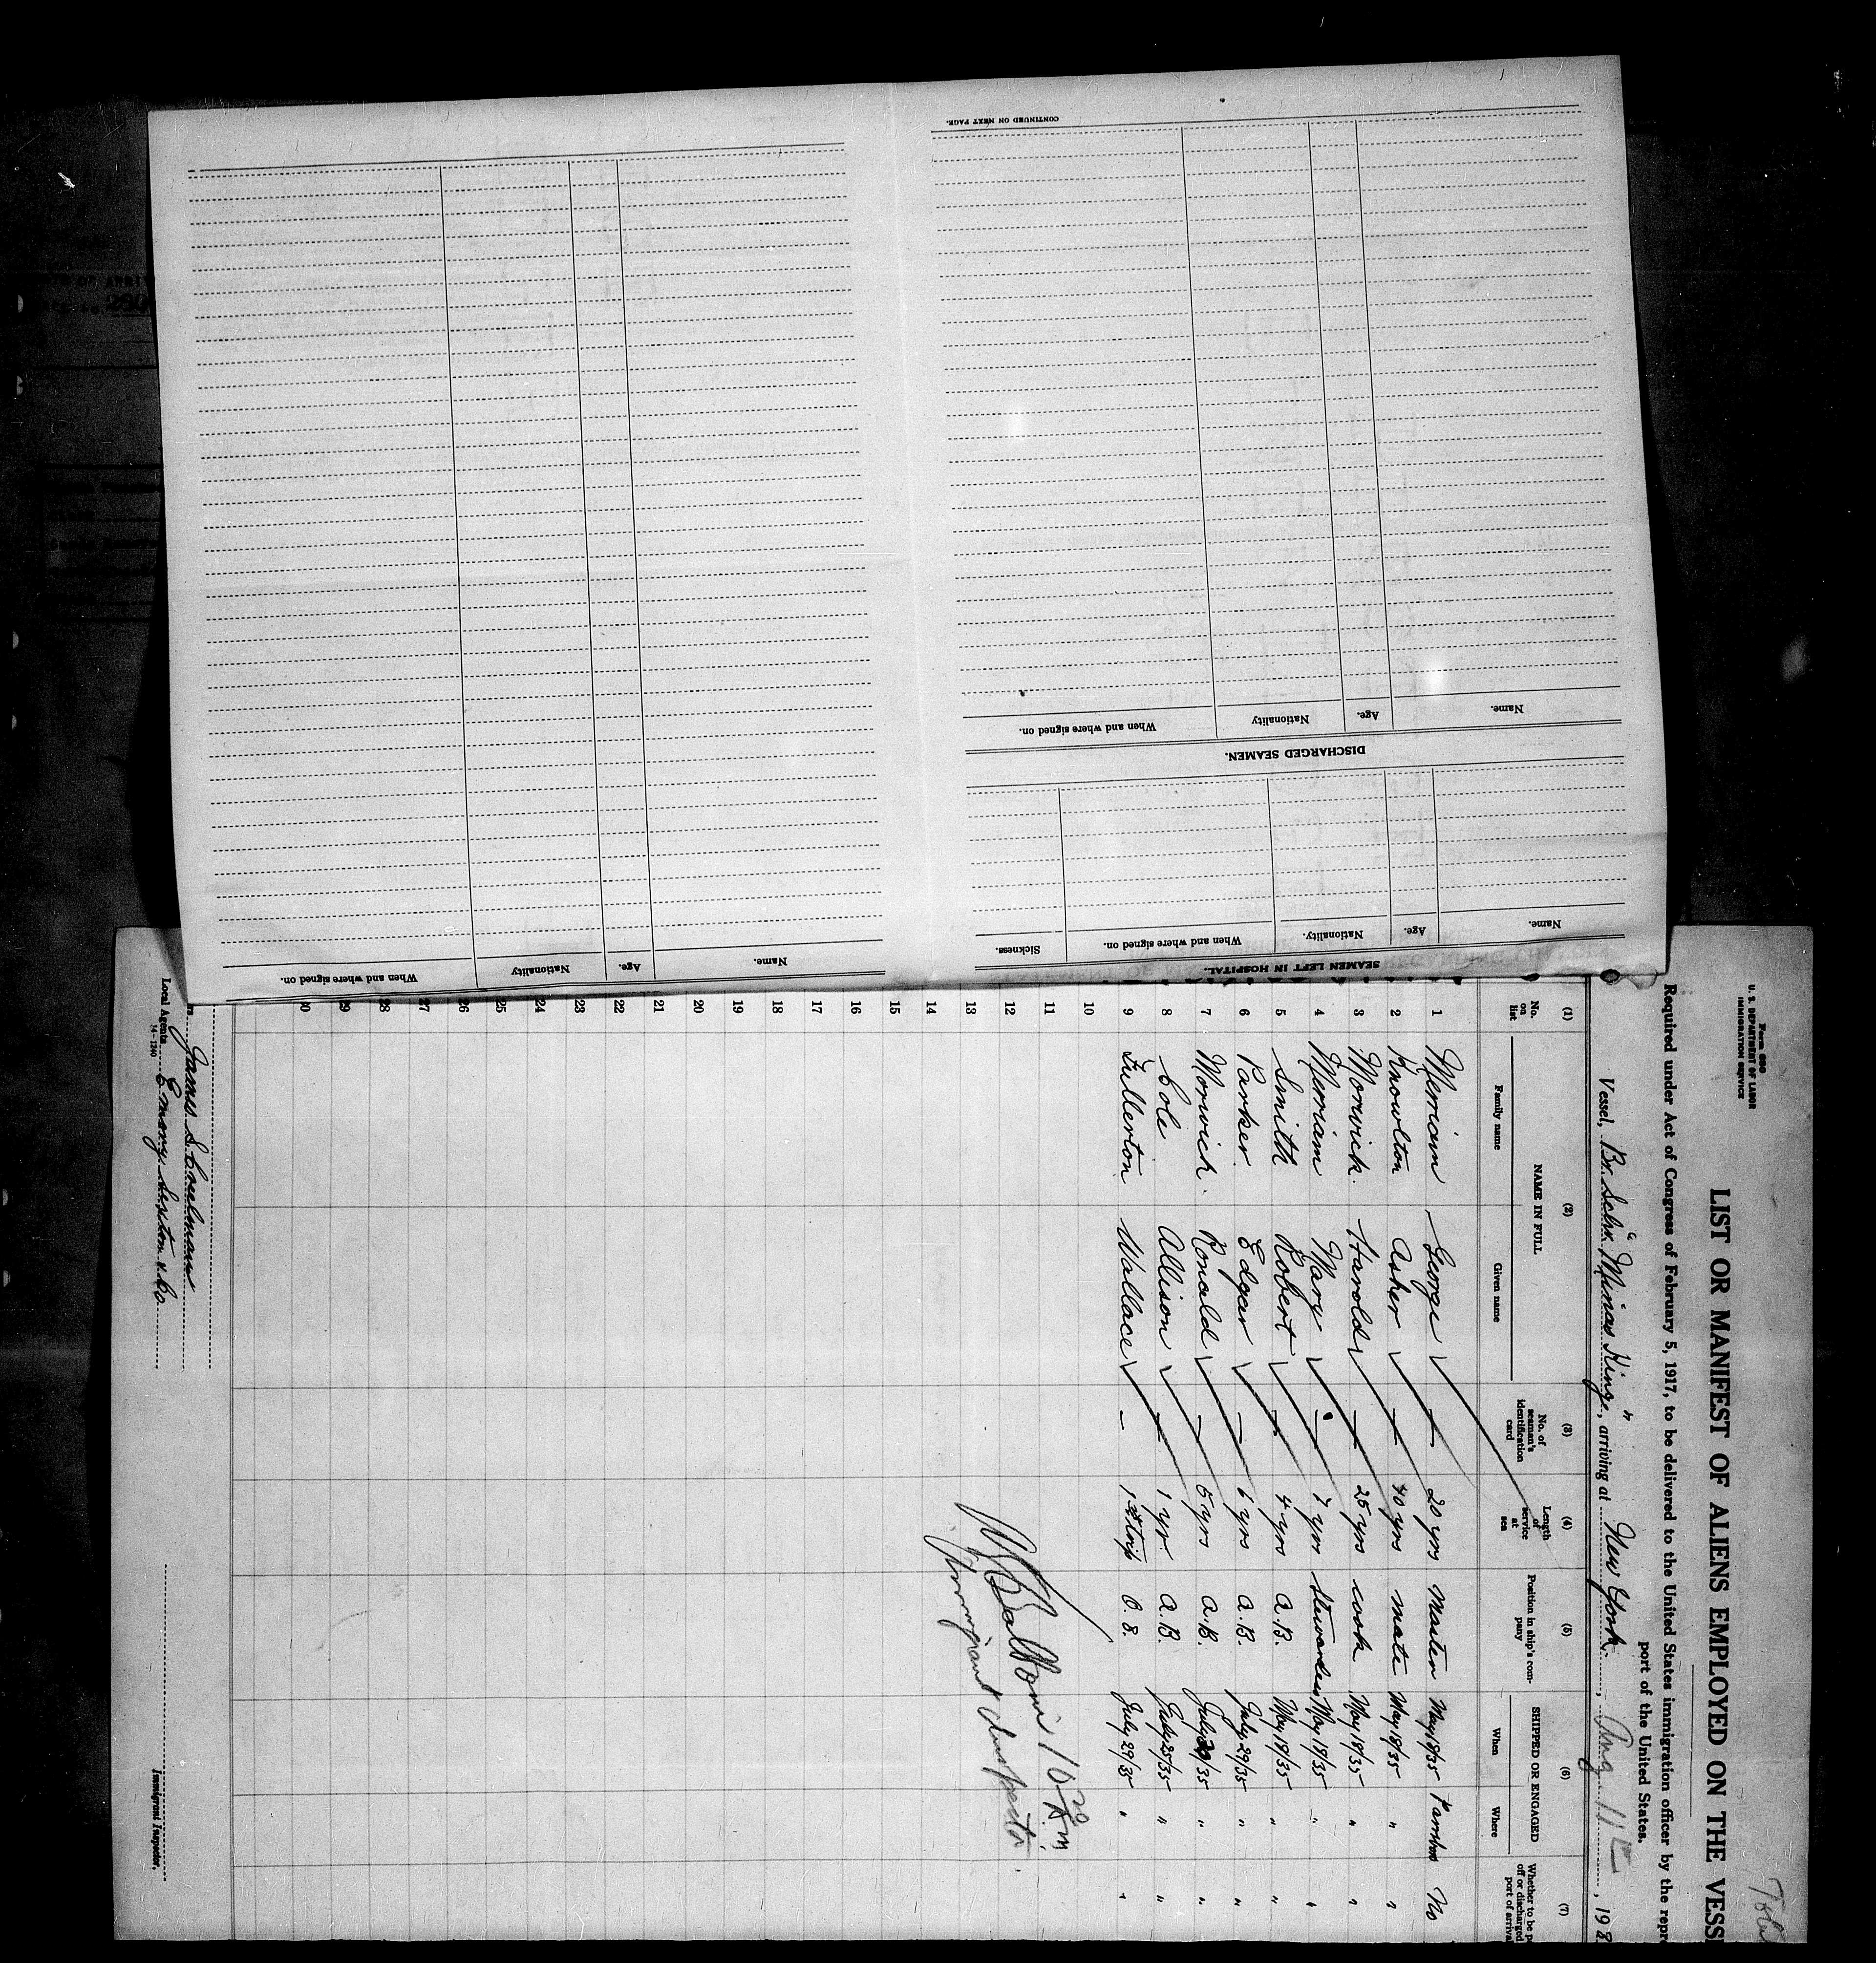 Form 680
U. S. DEPARTMENT OF LABOR
IMMIGRATION SERVICE
LIST OR MANIFEST OF ALIENS EMPLOYED ON THE VESS
Required under Act of Congress of February 5, 1917, to be delivered to the United States immigration officer by the repre
port of the United States.
Vessel, Br. Schr. "Minas King", arriving at New York, Aug 11, 19
(1) (2) (3) (4) (5) (6) (7)
No. on list NAME IN FULL No. of seaman's identification card Length of service at sea Position in ship's company SHIPPED OR ENGAGED Whether to be p off or discharged port of arrival
Family name Given name When Where
1 Merriam George — 20 yrs Master May 18/35 No
2 Knowlton Asher — 40 yrs mate May 18/35 " "
3 Morwick Harold — 25 yrs cook May 18/35 " "
4 Merriam Mary — 7 yrs Stewardess May 18/35 " "
5 Smith Robert — 4 yrs A.B. May 18/35 " "
6 Parker Edgar — 6 yrs A.B. July 29/35 " "
7 Morwick Ronald — 5 yrs A.B. July /35 " "
8 Cole Allison — 1 yr. A.B. July 25/35 " "
9 Fullerton Wallace — 1st trip O.S. July 29/35 " "
10
11
12
13
14
15
16
17
18
19
20
21
22
23
24
25
26
27
28
29
30
Immigrant Inspector.
Local Agents Emory Sexton & Co.
14-1240
Immigrant Inspector.
SEAMEN LEFT IN HOSPITAL.
Name. Age. Nationality. When and where signed on. Sickness.
DISCHARGED SEAMEN.
Name. Age. Nationality When and where signed on.
CONTINUED ON NEXT PAGE.
Name. Age. Nationality When and where signed on.